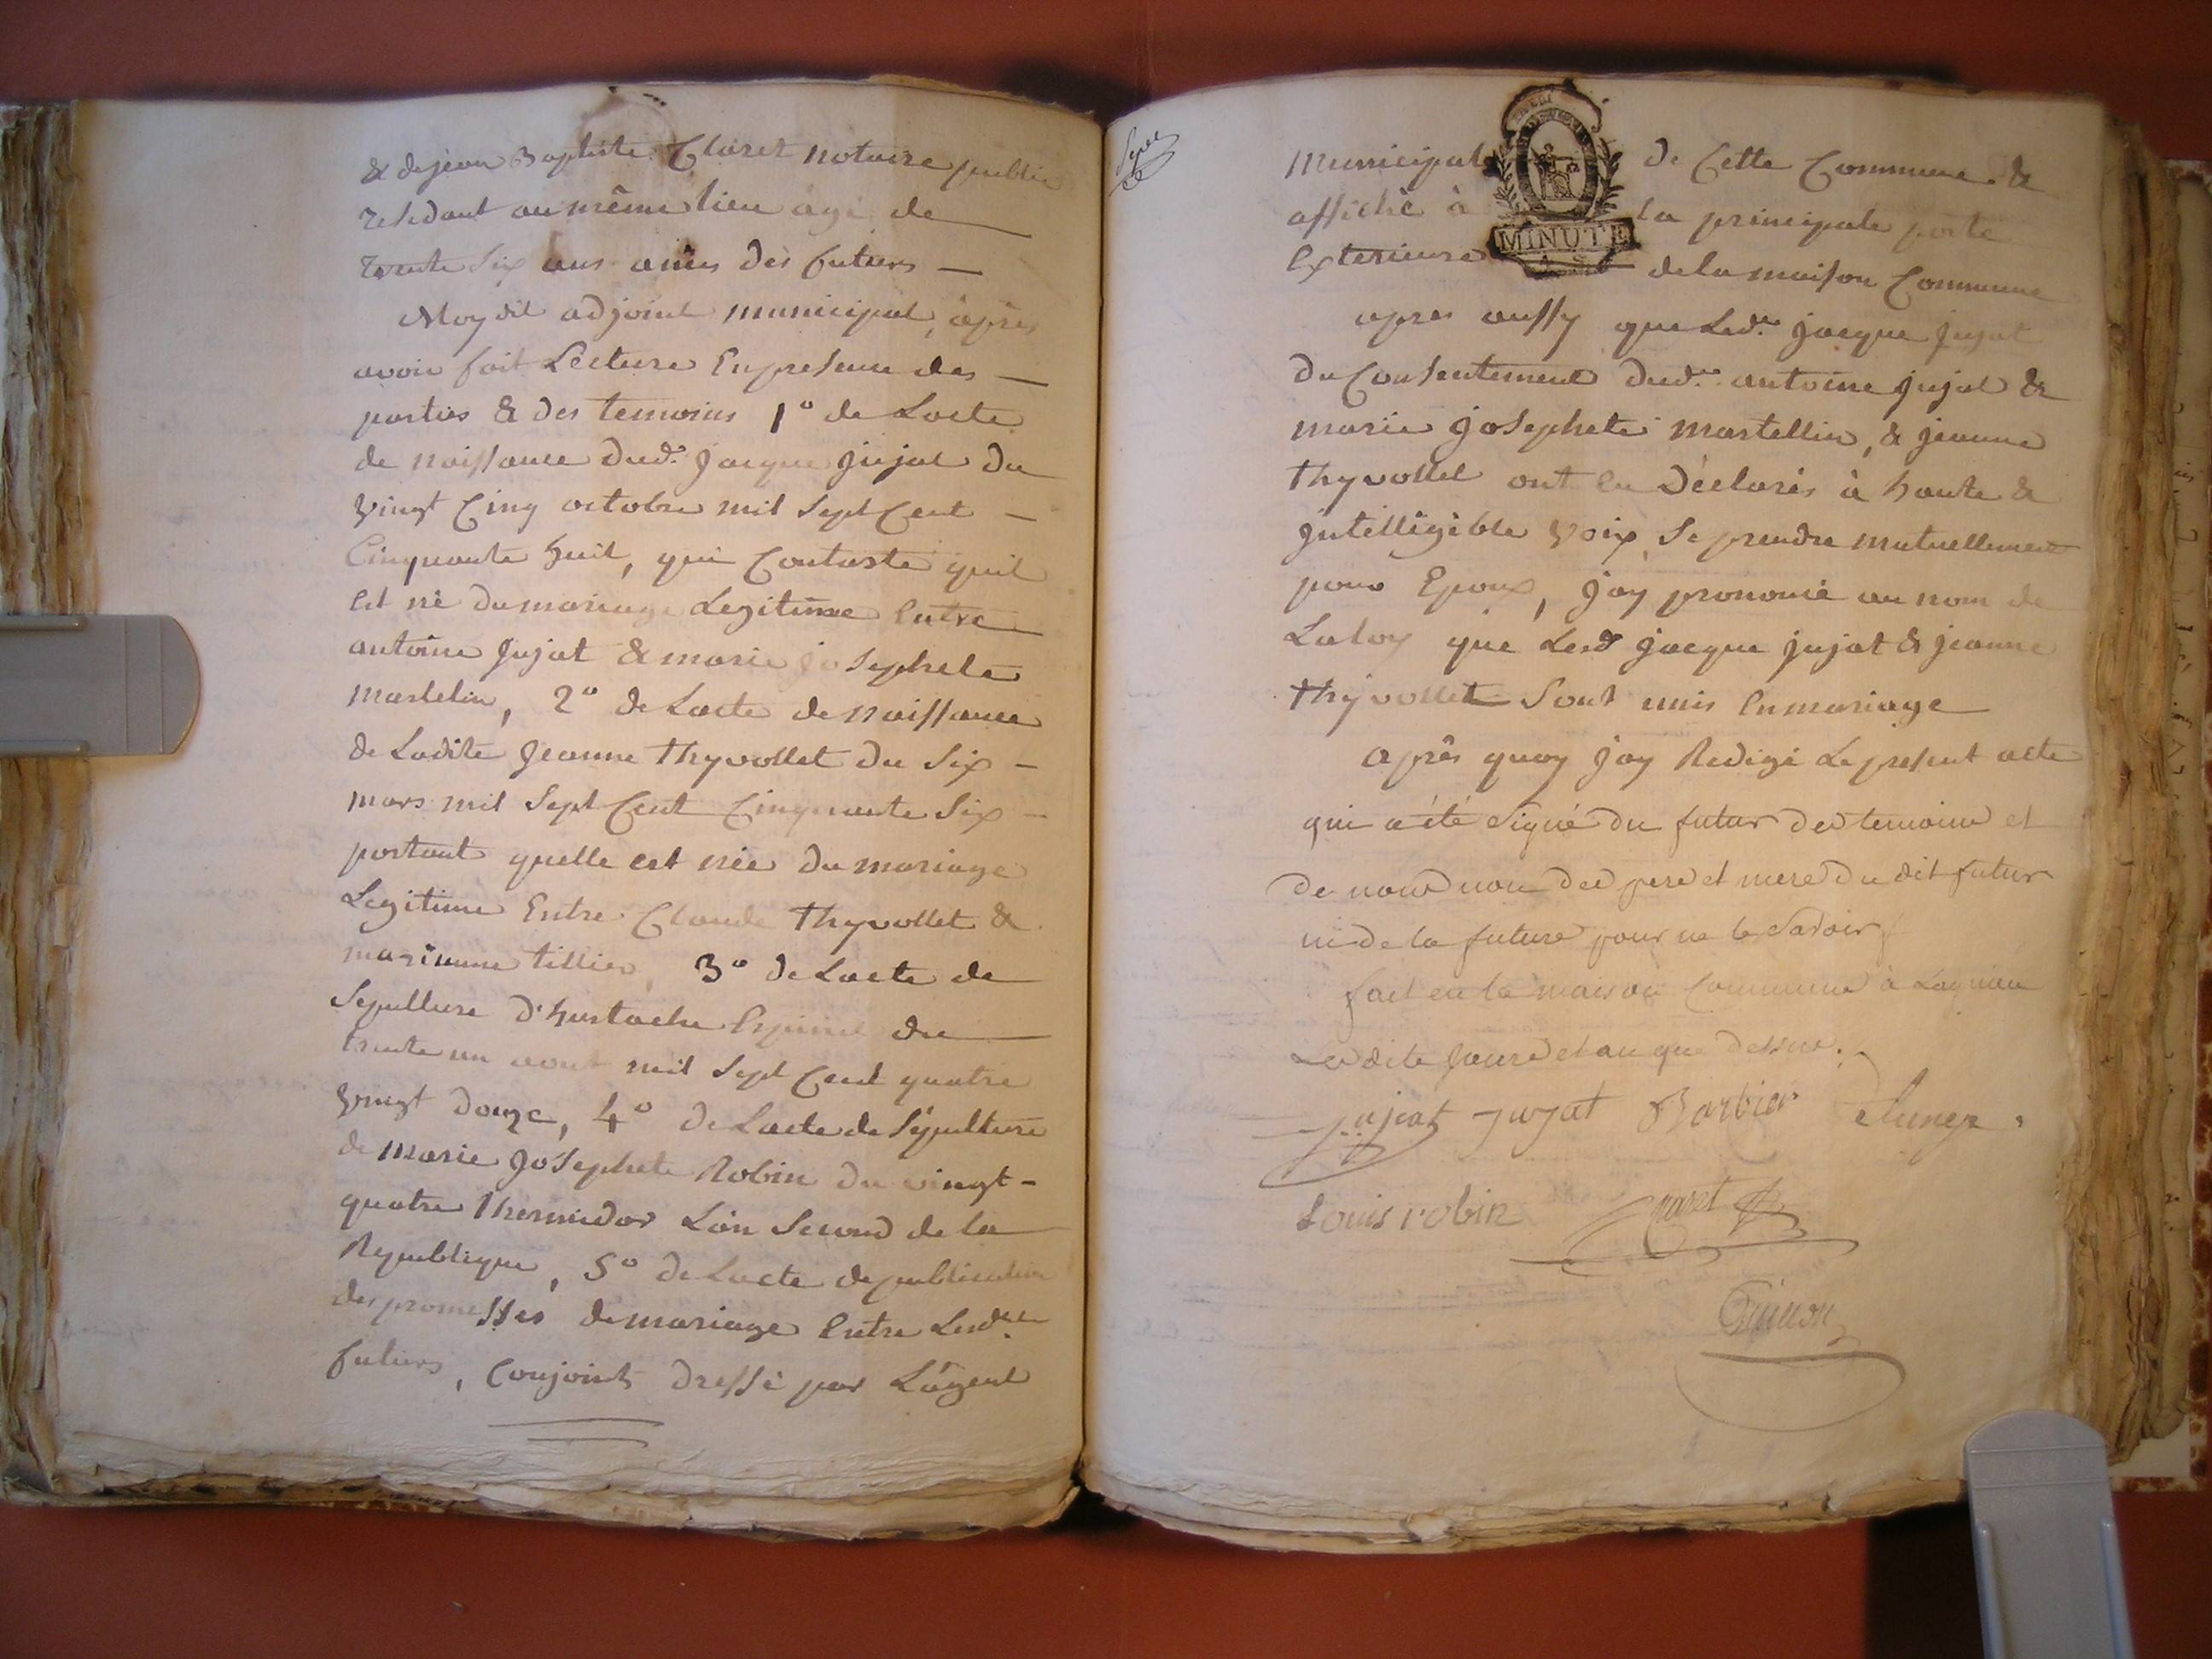 & de jean Baptiste Claret notaire public
residant au même lieu agé de
trente six ans amis des futurs
Moy dit adjoint municipal, après
avoir fait Lecture En presence des
parties & des temoins 1° de Lacte
de naissance dud. Jacque Jujat du
vingt Cinq octobre mil Sept Cent
Cinquante huit, qui Contaste quil
Est né du mariage Legitime Entre
antoine Jujat & marie josephete
Martelin, 2° de Lacte de naissance
de Ladite Jeanne thyvollet du Six
mars mil Sept Cent Cinquante Six
portant quelle est née du mariage
Legitime Entre Claude thyvollet &
marianne tillier, 3° de Lacte de
Sepulture d'hustache Espinel du
trente un aout mil Sept Cent quatre
vingt douze, 4° de Lacte de Sépulture
de Marie Josephete Robin du vingt-
quatre thermidor L'an Second de la
Republique, 5° de Lacte de publication
des promesses de mariage Entre Lesd.
futurs, Conjoints dressé par L'agent
municipal de Cette Commune &
affiché à La principale porte
Exterieure de la maison Commune
MINUTE
apres aussy que Led. Jacque Jujat
du Consentement dud. antoine Jujat &
marie Josephete Martellin, & jeanne
thyvollet ont Eu Déclarés à haute &
Intélligible voix, Se prendre mutuellement
pour Epoux, J'ay prononcé au nom de
La loy que Lesd. Jacque Jujat & Jeanne
thyvollet Sont unis En mariage
Après quoy J'ay Redigé Le present acte
qui a été signé du futur des temoins et
de nous non des pere et mere du dit futur
ni de la future pour ne le savoir
fait en la maison Commune à Lagnieu
Les dits Jours et an que dessus.
jujat Jujat Barbier
Louis robin Claret